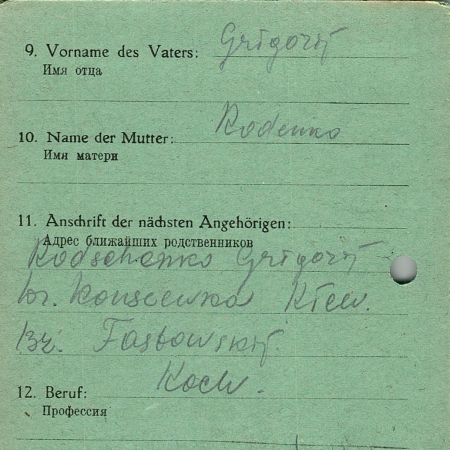 9. Vorname des Vaters: Grigorij
Имя отца
10. Name der Mutter: Rodenko
Имя матери
11. Anschrift der nächsten Angehörigen:
Адрес ближайших родственников
Rodschenko Grigorij
Kiew.
Bz. Fastowskij.
12. Beruf: Koch.
Профессия